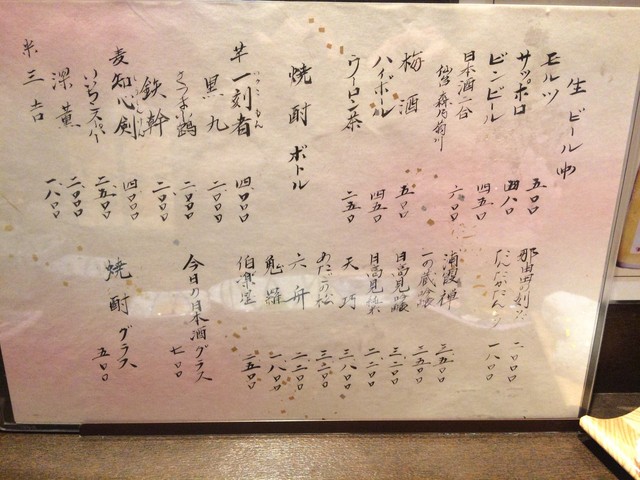 生ビール中
モルツ 五〇〇
サッポロ 四八〇
ビンビール 四五〇
日本酒二合 六〇〇
仙台 森乃菊川
梅酒 五〇〇
ハイボール 四五〇
ウーロン茶 二五〇
焼酎 ボトル
芋 一刻者 四、〇〇〇
いっこもん
黒丸 二〇〇〇
さつま 二、〇〇〇
鉄幹 二〇〇〇
麦 知心剣 四、〇〇〇
いいちこスーパー 二、五〇〇
深薫 二、〇〇〇
米 三吉 一、八〇〇
那由田の刻 二、〇〇〇
たんたかたん 一、八〇〇
浦霞 禅 三、五〇〇
一の蔵 三、五〇〇
日高見 三、二〇〇
日高見 二、二〇〇
天巧 三、八〇〇
の松 三、二〇〇
六舟 二、二〇〇
一、八〇〇
伯楽星 二、五〇〇
今日の日本酒グラス 七〇〇
焼酎グラス 五〇〇